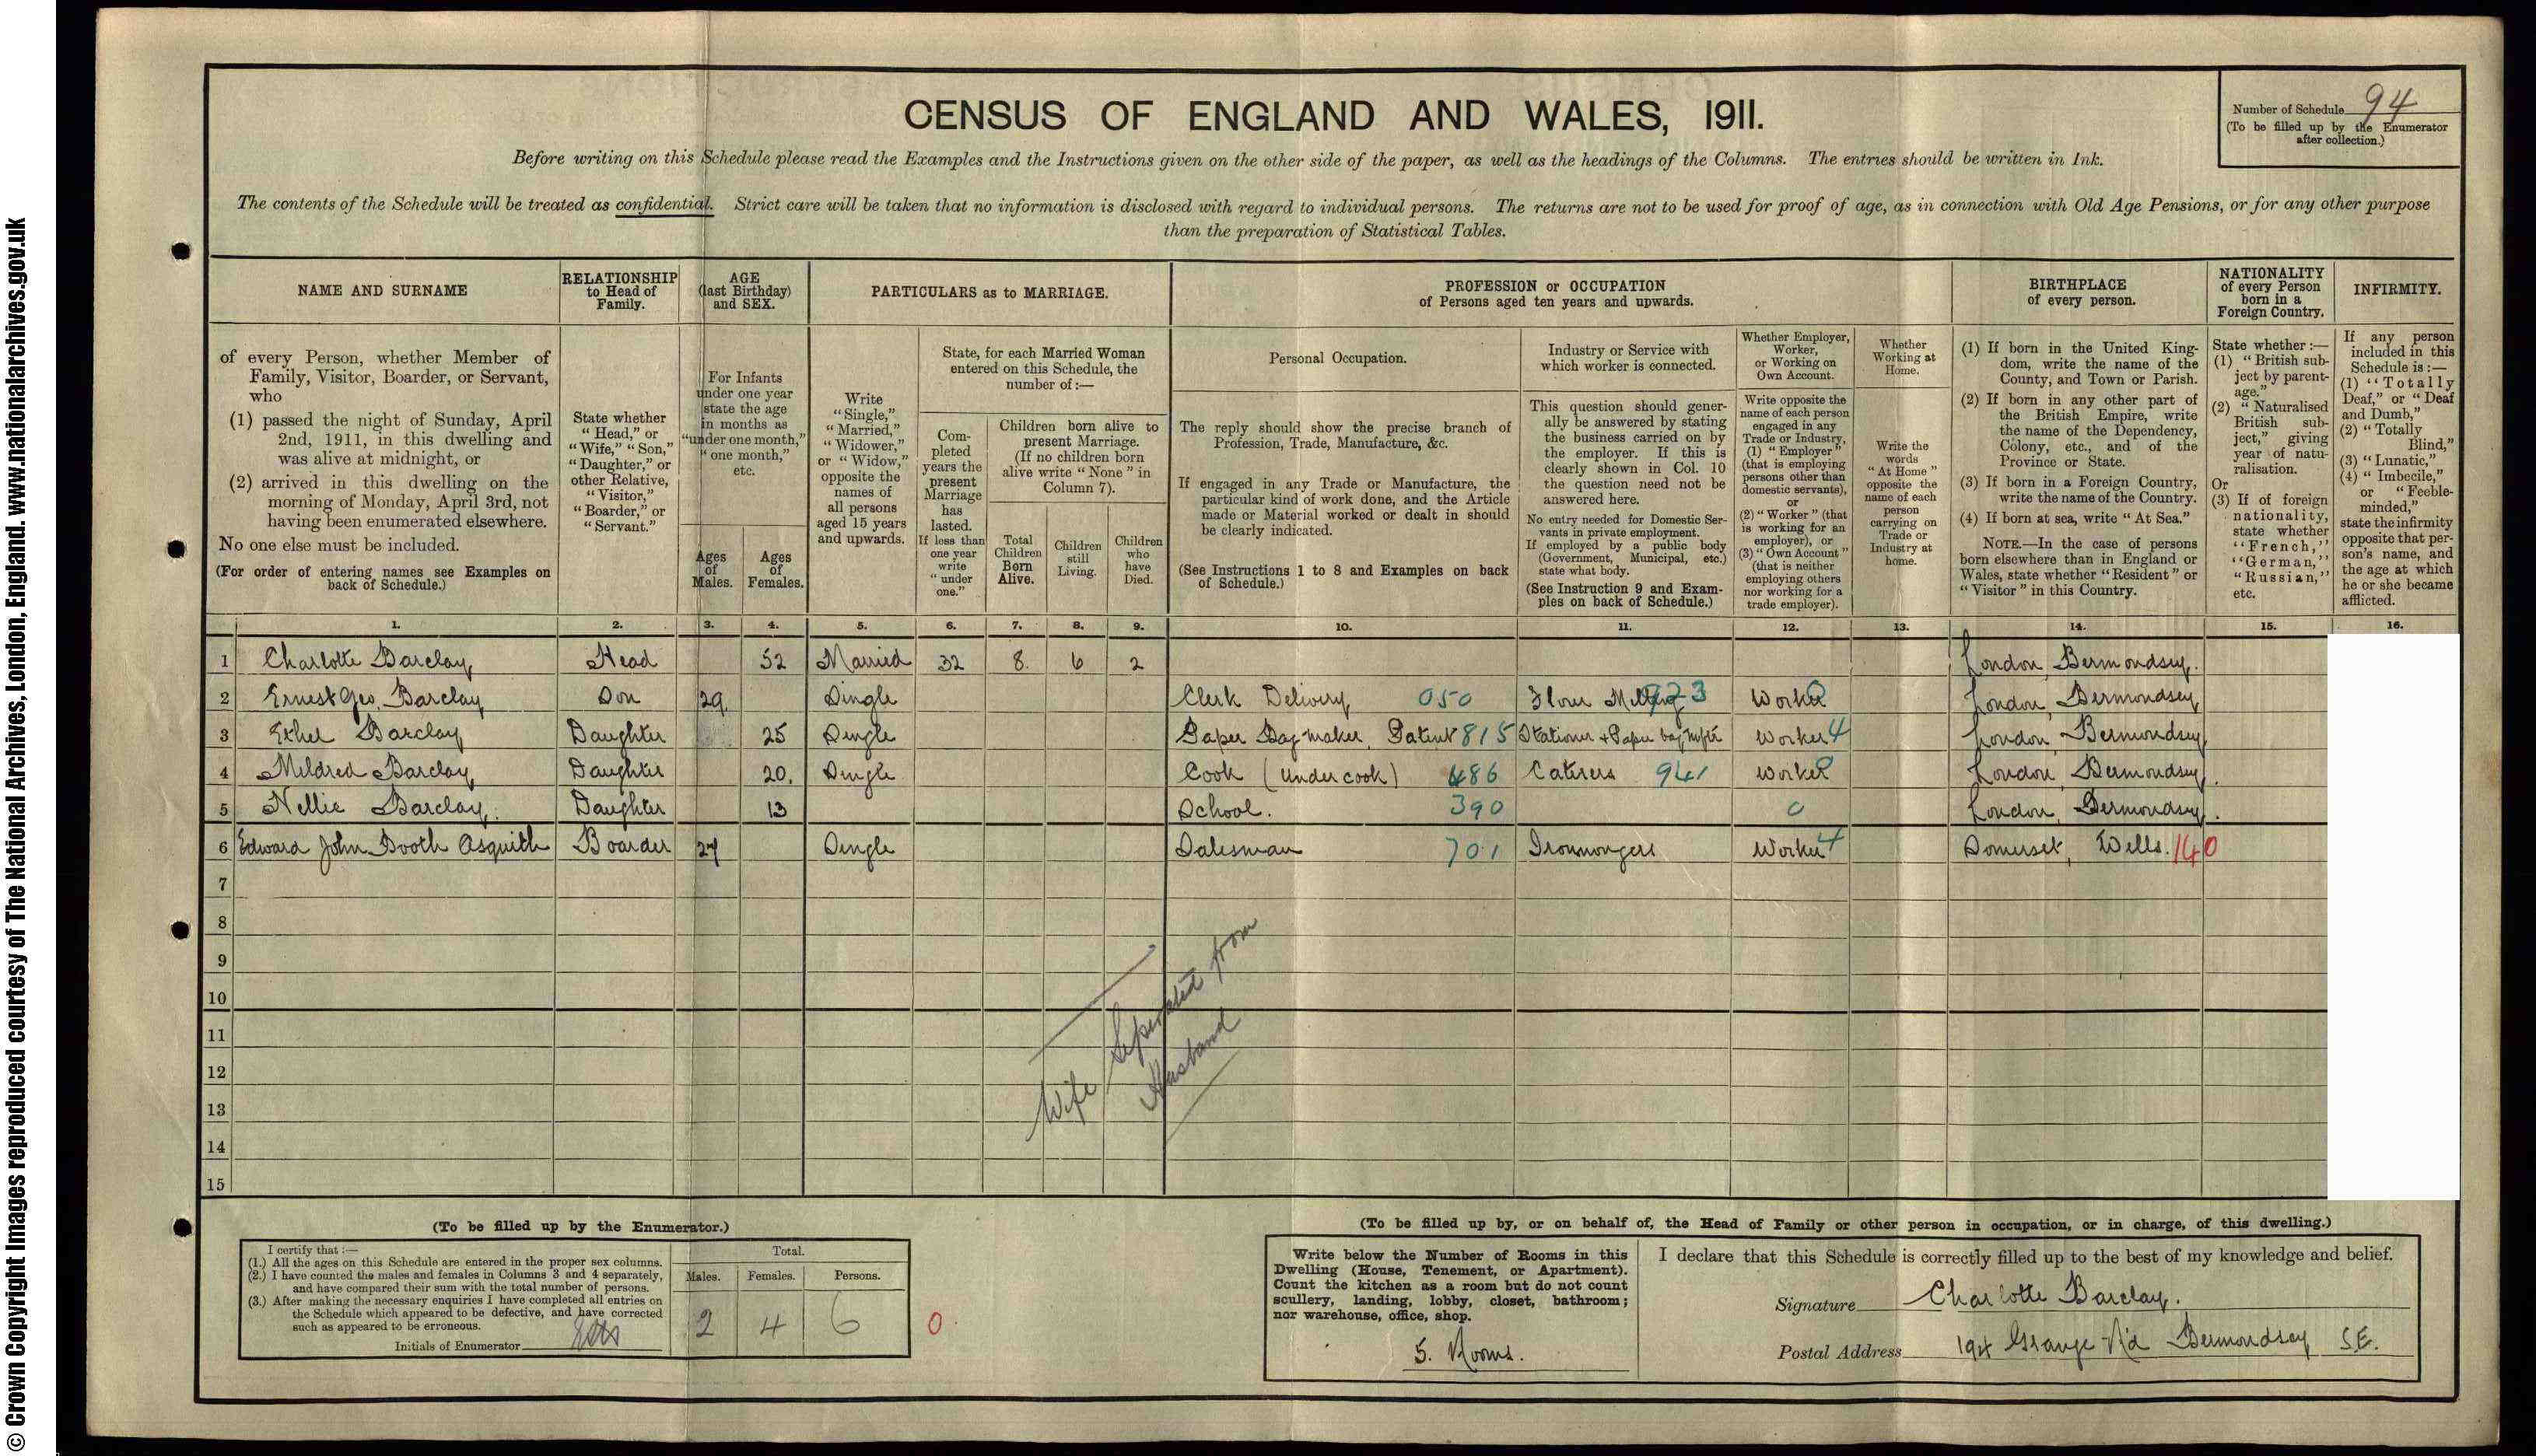 © Crown Copyright Images reproduced courtesy of The National Archives, London, England. www.nationalarchives.gov.uk
CENSUS OF ENGLAND AND WALES, 1911.
Number of Schedule 94
(To be filled up by the Enumerator
after collection.)
Before writing on this Schedule please read the Examples and the Instructions given on the other side of the paper, as well as the headings of the Columns. The entries should be written in Ink.
The contents of the Schedule will be treated as confidential. Strict care will be taken that no information is disclosed with regard to individual persons. The returns are not to be used for proof of age, as in connection with Old Age Pensions, or for any other purpose
than the preparation of Statistical Tables.
NAME AND SURNAME
of every Person, whether Member of
Family, Visitor, Boarder, or Servant,
who
(1) passed the night of Sunday, April
2nd, 1911, in this dwelling and
was alive at midnight, or
(2) arrived in this dwelling on the
morning of Monday, April 3rd, not
having been enumerated elsewhere.
No one else must be included.
(For order of entering names see Examples on
back of Schedule.)
RELATIONSHIP
to Head of
Family.
State whether
“Head,” or
“Wife,” “Son,”
“Daughter,” or
other Relative,
“Visitor,”
“Boarder,” or
“Servant.”
AGE
(last Birthday)
and SEX.
For Infants
under one year
state the age
in months as
“under one month,”
“one month,”
etc.
Ages
of
Males.
Ages
of
Females.
PARTICULARS as to MARRIAGE.
Write
“Single,”
“Married,”
“Widower,”
or “Widow,”
opposite the
names of
all persons
aged 15 years
and upwards.
State, for each Married Woman
entered on this Schedule, the
number of :—
Com-
pleted
years the
present
Marriage
has
lasted.
If less than
one year
write
“under
one.”
Children born alive to
present Marriage.
(If no children born
alive write “None” in
Column 7).
Total
Children
Born
Alive.
Children
still
Living.
Children
who
have
Died.
PROFESSION or OCCUPATION
of Persons aged ten years and upwards.
Personal Occupation.
The reply should show the precise branch of
Profession, Trade, Manufacture, &c.
If engaged in any Trade or Manufacture, the
particular kind of work done, and the Article
made or Material worked or dealt in should
be clearly indicated.
(See Instructions 1 to 8 and Examples on back
of Schedule.)
Industry or Service with
which worker is connected.
This question should gener-
ally be answered by stating
the business carried on by
the employer. If this is
clearly shown in Col. 10
the question need not be
answered here.
No entry needed for Domestic Ser-
vants in private employment.
If employed by a public body
(Government, Municipal, etc.)
state what body.
(See Instruction 9 and Exam-
ples on back of Schedule.)
Whether Employer,
Worker,
or Working on
Own Account.
Write opposite the
name of each person
engaged in any
Trade or Industry,
(1) “Employer”
(that is employing
persons other than
domestic servants),
or
(2) “Worker” (that
is working for an
employer), or
(3) “Own Account”
(that is neither
employing others
nor working for a
trade employer).
Whether
Working at
Home.
Write the
words
“At Home”
opposite the
name of each
person
carrying on
Trade or
Industry at
home.
BIRTHPLACE
of every person.
(1) If born in the United King-
dom, write the name of the
County, and Town or Parish.
(2) If born in any other part of
the British Empire, write
the name of the Dependency,
Colony, etc., and of the
Province or State.
(3) If born in a Foreign Country,
write the name of the Country.
(4) If born at sea, write “At Sea.”
NOTE.—In the case of persons
born elsewhere than in England or
Wales, state whether “Resident” or
“Visitor” in this Country.
NATIONALITY
of every Person
born in a
Foreign Country.
State whether :—
(1) “British sub-
ject by parent-
age.”
(2) “Naturalised
British sub-
ject,” giving
year of natu-
ralisation.
Or
(3) If of foreign
nationality,
state whether
“French,”
“German,”
“Russian,”
etc.
INFIRMITY.
If any person
included in this
Schedule is :—
(1) “Totally
Deaf,” or “Deaf
and Dumb,”
(2) “Totally
Blind,”
(3) “Lunatic,”
(4) “Imbecile,”
or “Feeble-
minded,”
state the infirmity
opposite that per-
son's name, and
the age at which
he or she became
afflicted.
1. 2. 3. 4. 5. 6. 7. 8. 9. 10. 11. 12. 13. 14. 15. 16.
1 Charlotte Barclay Head 52 Married 32 8 6 2 London, Bermondsey.
2 Ernest Geo. Barclay Son 29. Single Clerk Delivery 050 Flour Milling 923 Worker London, Bermondsey
3 Ethel Barclay Daughter 25 Single Paper Bag maker, Patent 815 Stationer & Paper bag Worker 4 London, Bermondsey
4 Mildred Barclay Daughter 20. Single Cook (under cook) 486 Caterers 941 Worker London, Bermondsey.
5 Nellie Barclay. Daughter 13 School. 390 0 London, Bermondsey.
6 Edward John Booth Asquith Boarder 27 Single Salesman 701 Ironmongers Worker 4 Somerset, Wells. 140
7
8
9
10
11
12
13
14
15
Wife Seperated from
Husband
(To be filled up by the Enumerator.)
I certify that :—
(1.) All the ages on this Schedule are entered in the proper sex columns.
(2.) I have counted the males and females in Columns 3 and 4 separately,
and have compared their sum with the total number of persons.
(3.) After making the necessary enquiries I have completed all entries on
the Schedule which appeared to be defective, and have corrected
such as appeared to be erroneous.
Initials of Enumerator
Total.
Males. Females. Persons.
2 4 6 0
(To be filled up by, or on behalf of, the Head of Family or other person in occupation, or in charge, of this dwelling.)
Write below the Number of Rooms in this
Dwelling (House, Tenement, or Apartment).
Count the kitchen as a room but do not count
scullery, landing, lobby, closet, bathroom;
nor warehouse, office, shop.
5. Rooms.
I declare that this Schedule is correctly filled up to the best of my knowledge and belief.
Signature Charlotte Barclay.
Postal Address 194 Grange Rd Bermondsey S.E.